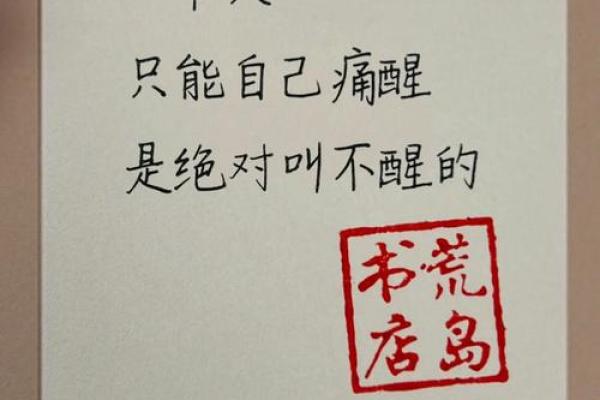 只能自己痛醒
是绝对叫不醒的
荒岛
书店